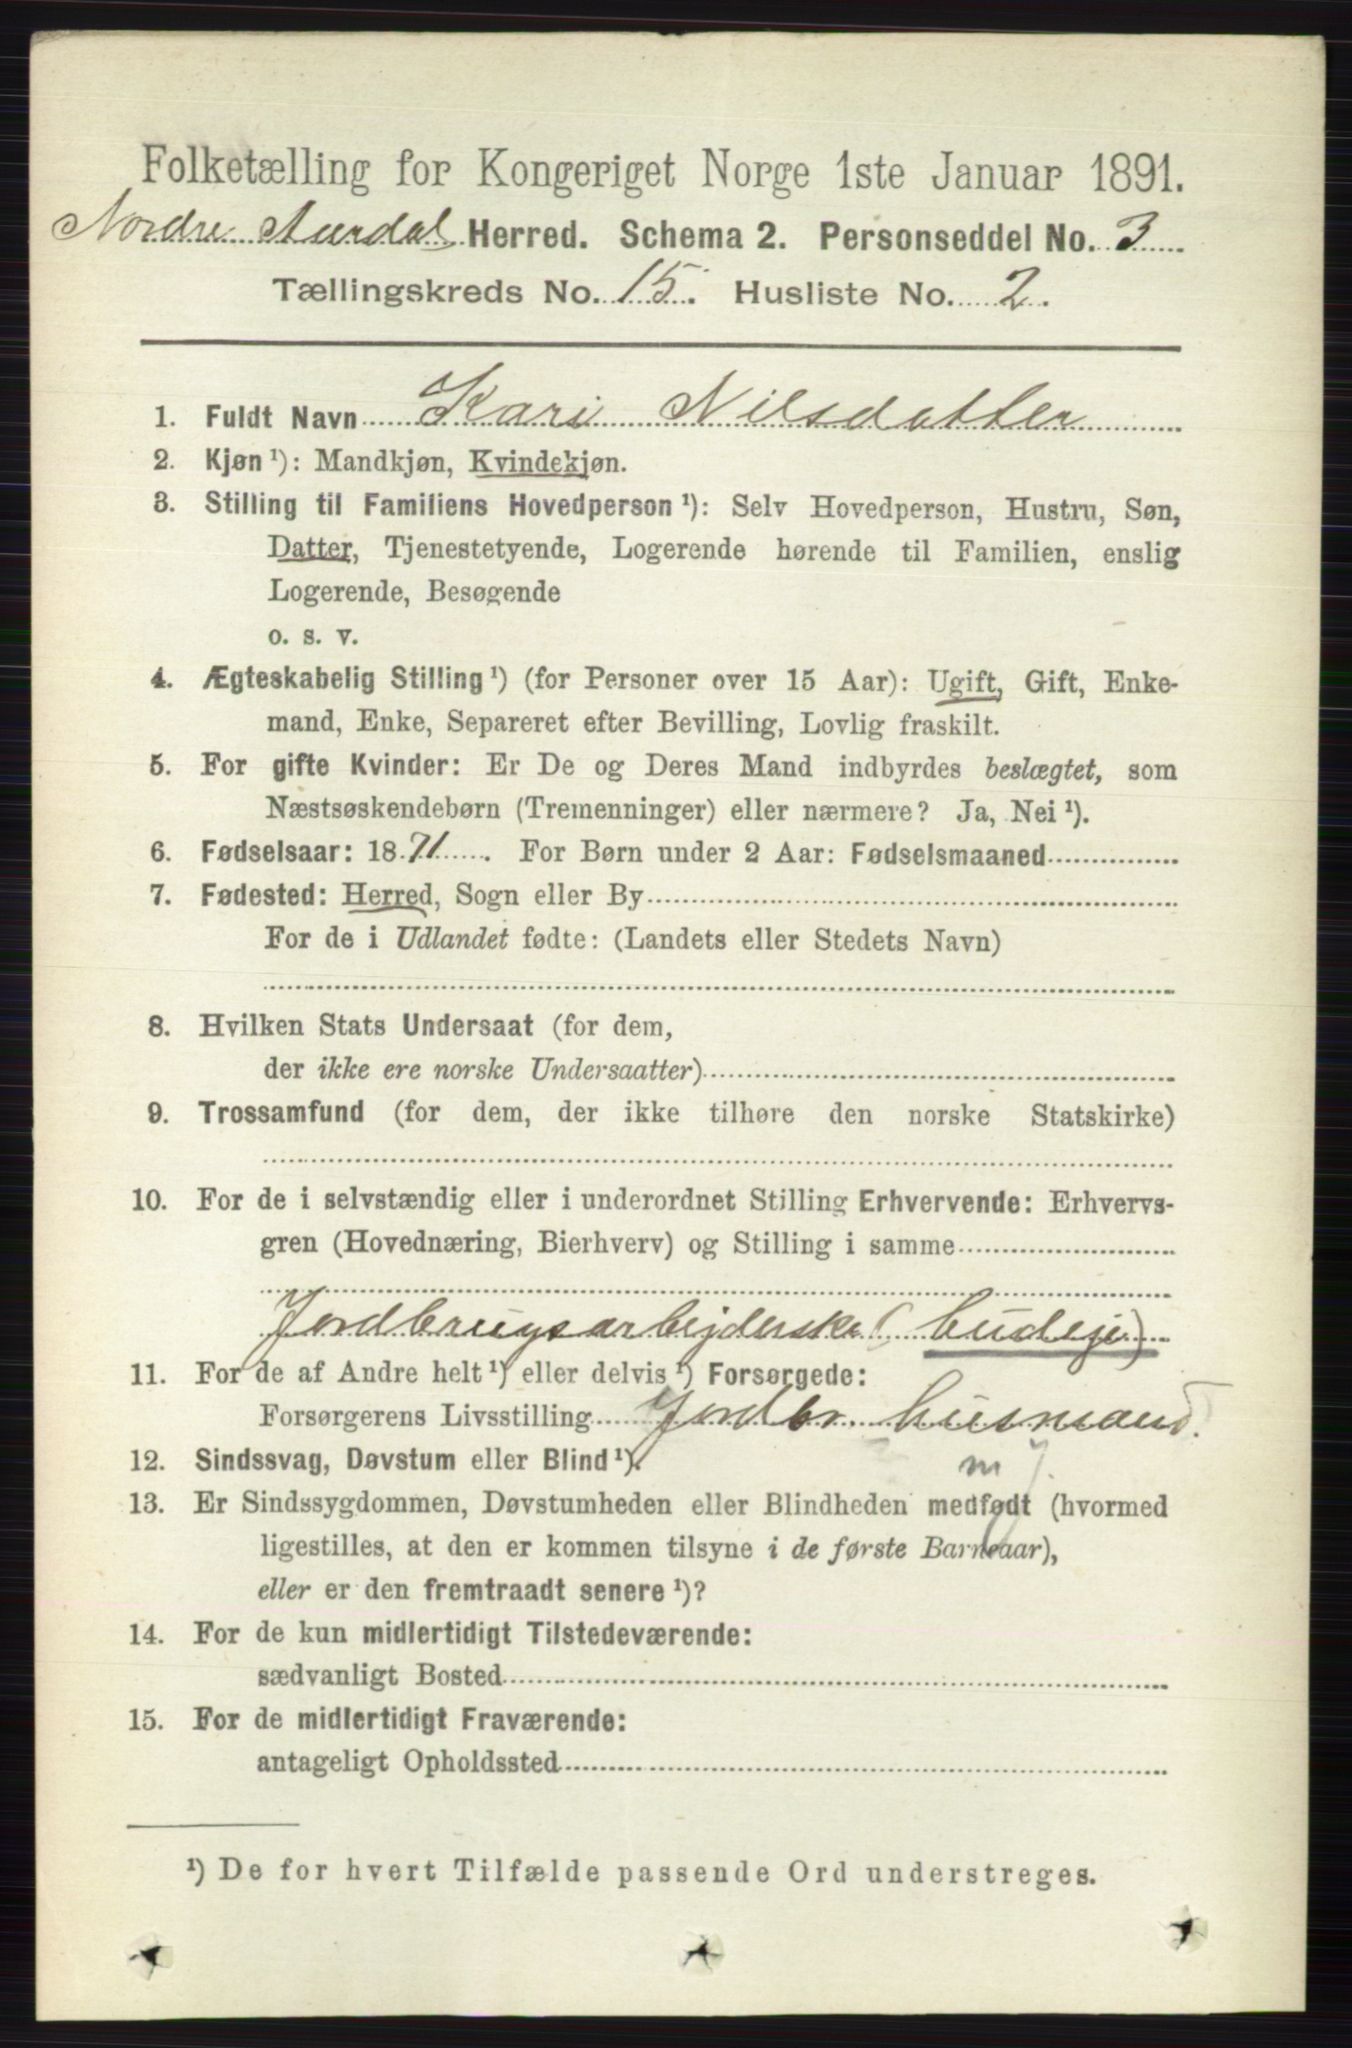 Folketælling for Kongeriget Norge 1ste Januar 1891.
Nordre Aurdal Herred. Schema 2. Personseddel No. 3
Tællingskreds No. 15. Husliste No. 2.
1. Fuldt Navn Kari Nilsdatter
2. Kjøn ¹): Mandkjøn, Kvindekjøn.
3. Stilling til Familiens Hovedperson ¹): Selv Hovedperson, Hustru, Søn,
Datter, Tjenestetyende, Logerende hørende til Familien, enslig
Logerende, Besøgende
o. s. v.
4. Ægteskabelig Stilling ¹) (for Personer over 15 Aar): Ugift, Gift, Enke-
mand, Enke, Separeret efter Bevilling, Lovlig fraskilt.
5. For gifte Kvinder: Er De og Deres Mand indbyrdes beslægtet, som
Næstsøskendebørn (Tremenninger) eller nærmere? Ja, Nei ¹).
6. Fødselsaar: 1871. For Børn under 2 Aar: Fødselsmaaned
7. Fødested: Herred, Sogn eller By
For de i Udlandet fødte: (Landets eller Stedets Navn)
8. Hvilken Stats Undersaat (for dem,
der ikke ere norske Undersaatter)
9. Trossamfund (for dem, der ikke tilhøre den norske Statskirke)
10. For de i selvstændig eller i underordnet Stilling Erhvervende: Erhvervs-
gren (Hovednæring, Bierhverv) og Stilling i samme
Jordbrugsarbejderske (budeje)
11. For de af Andre helt ¹) eller delvis ¹) Forsørgede:
Forsørgerens Livsstilling Jordbr. husmand.
12. Sindssvag, Døvstum eller Blind ¹).
13. Er Sindssygdommen, Døvstumheden eller Blindheden medfødt (hvormed
ligestilles, at den er kommen tilsyne i de første Barneaar),
eller er den fremtraadt senere ¹)?
14. For de kun midlertidigt Tilstedeværende:
sædvanligt Bosted
15. For de midlertidigt Fraværende:
antageligt Opholdssted
¹) De for hvert Tilfælde passende Ord understreges.